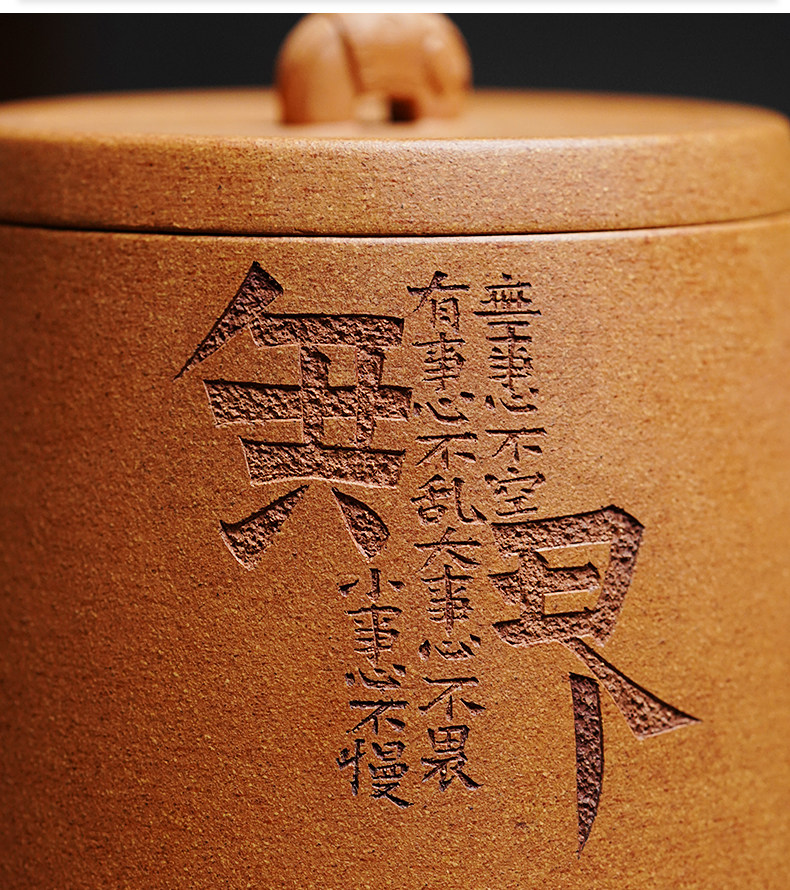 無界
無事心不空
有事心不乱大事心不畏
小事心不慢